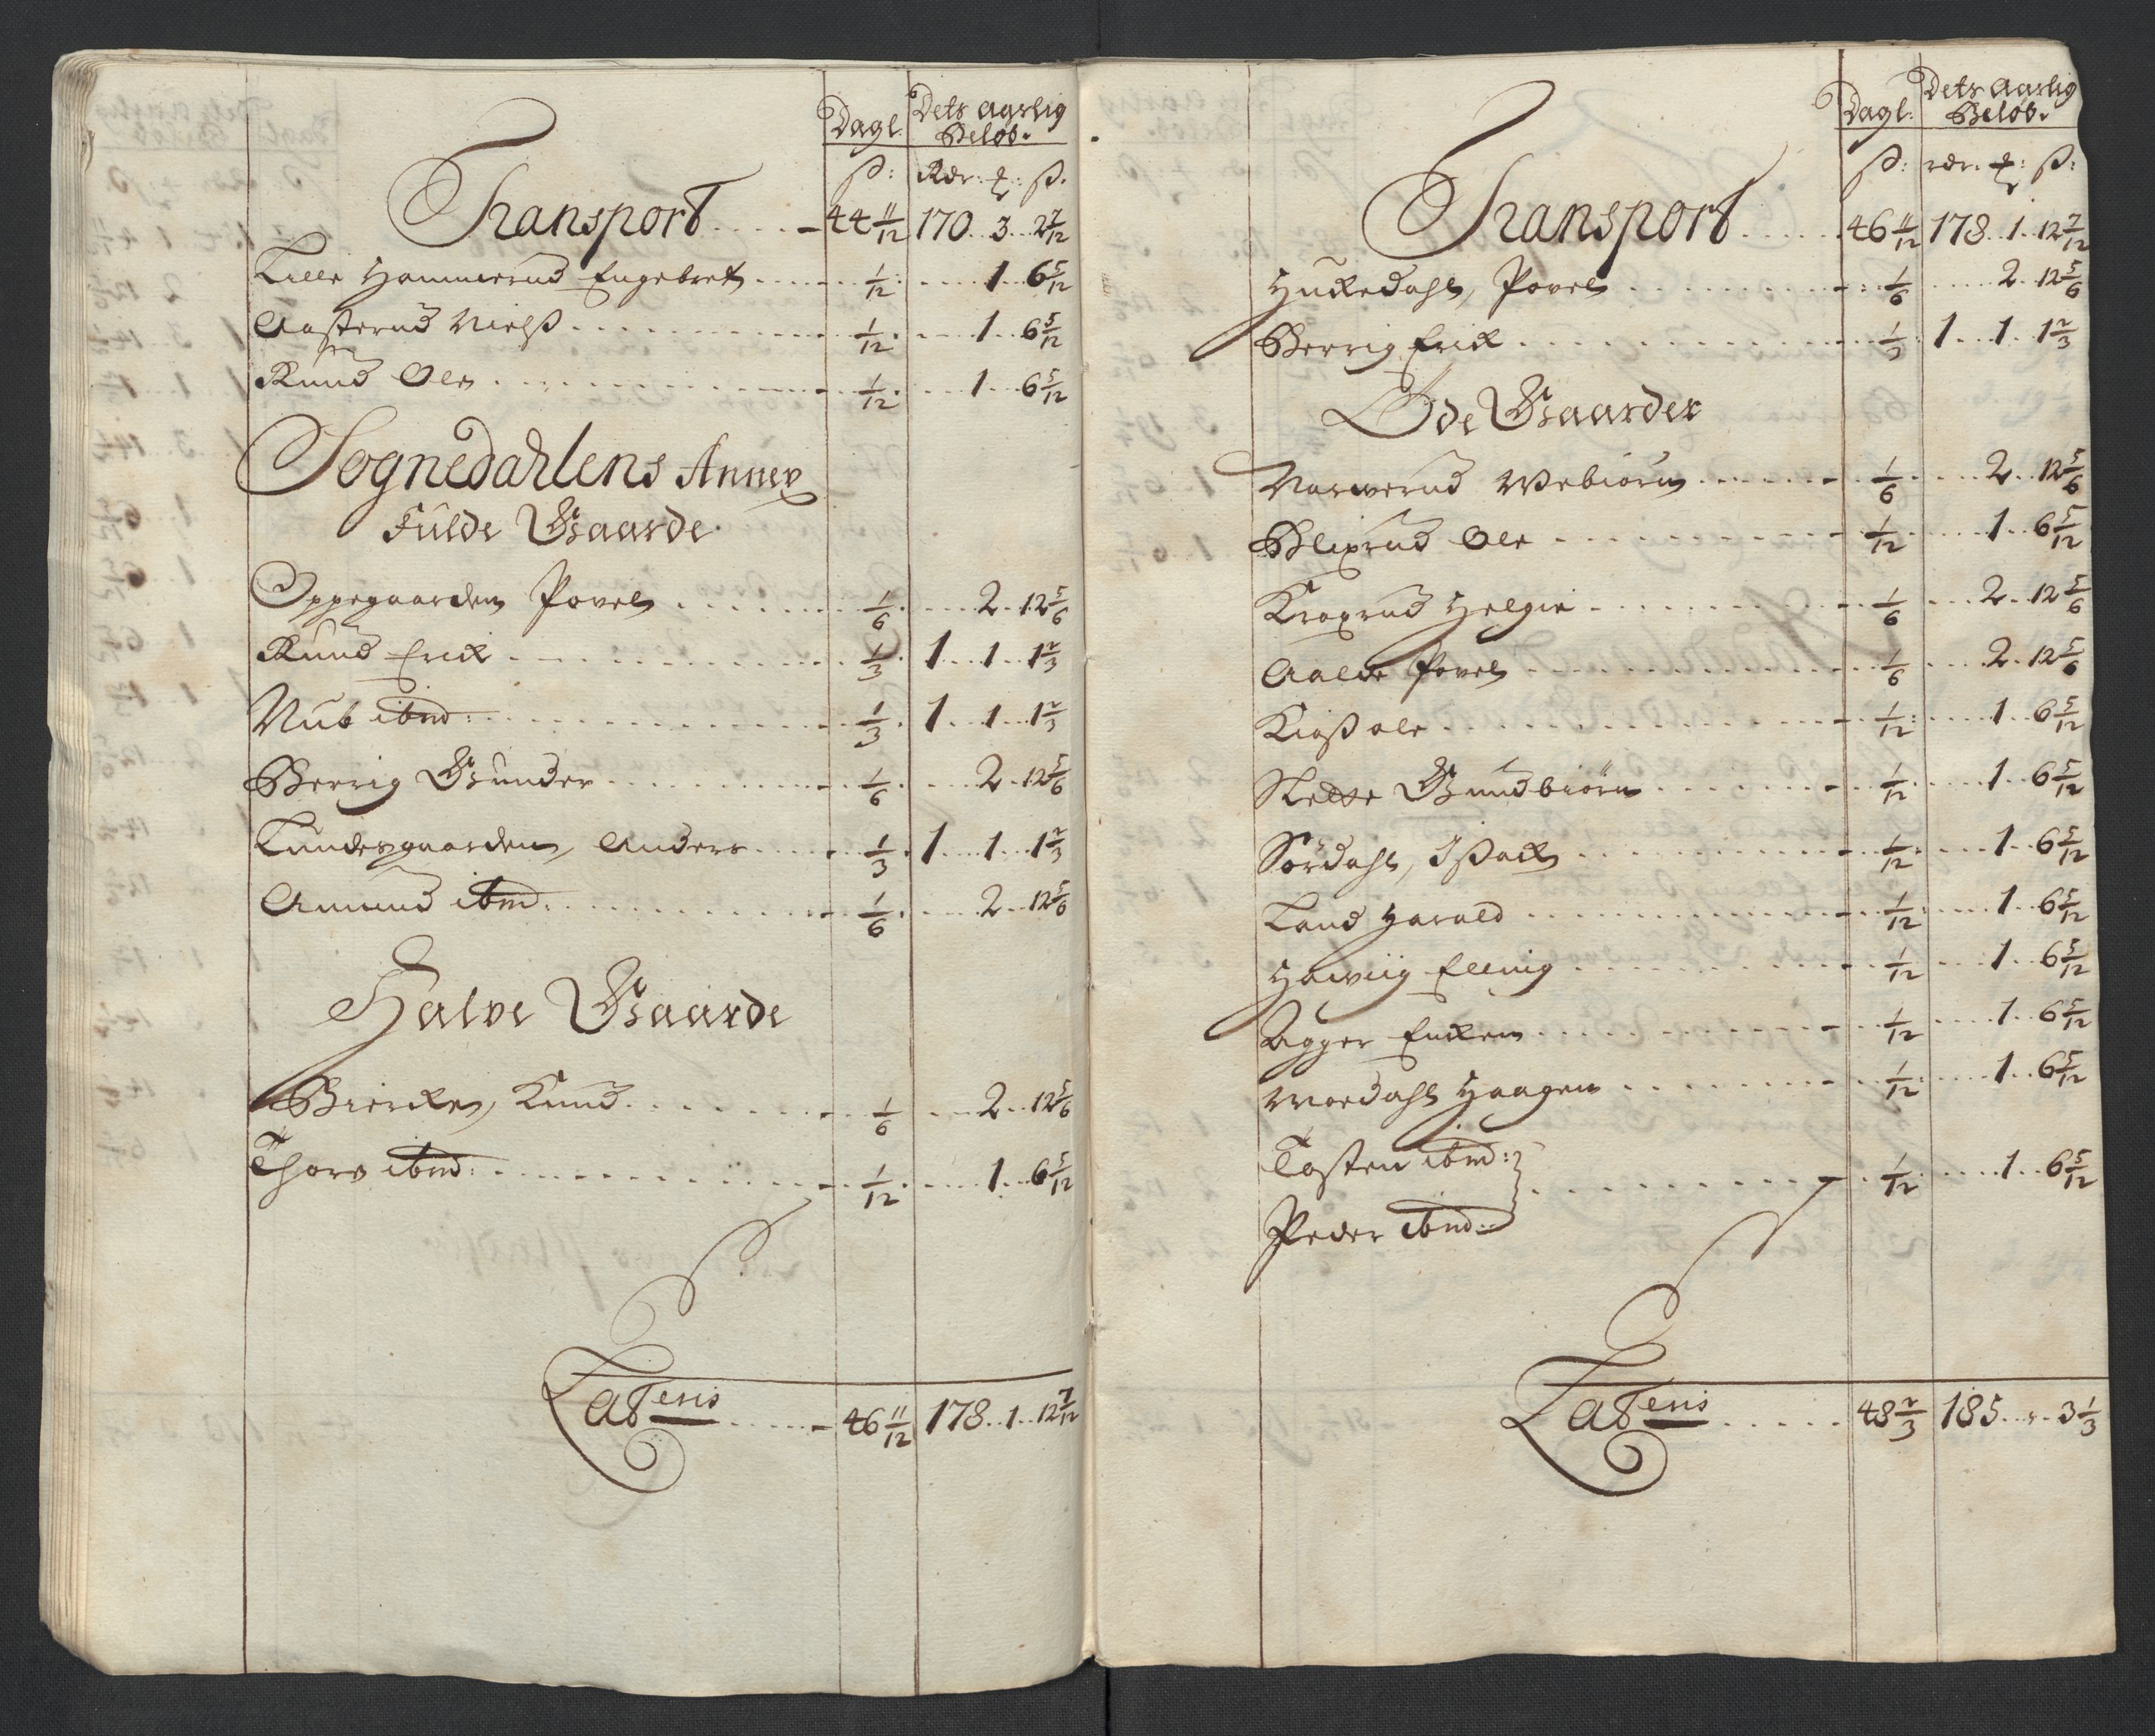 Dagl: Dets Aarlig Beløb.
ß: Rdr: ₰: ß.
Transport 44 11/12 170 .. 3 .. 2 7/12
Lille Hammerud Engebret 1/12 1 .. 6 5/12
Aasterud Nielß 1/12 1 .. 6 5/12
Rund Ole 1/12 1 .. 6 5/12
Sognedahlens Annex
Fulde Gaarde
Oppegaarden Povel 1/6 2 .. 12 5/6
Rund Erik 1/3 1 .. 1 .. 1 2/3
Nub ibid: 1/3 1 .. 1 .. 1 2/3
Berrig Gunder 1/6 2 .. 12 5/6
Lundesgaarden, Anders 1/3 1 .. 1 .. 1 2/3
Amund ibid: 1/6 2 .. 12 5/6
Halve Gaarde
Biercke, Knud 1/6 2 .. 12 5/6
Thorv ibid: 1/12 1 .. 6 5/12
Lateris 46 11/12 178 .. 1 .. 12 7/12
Dagl: Dets Aarlig Beløb.
ß: rdr. ₰: ß:
Transport 46 11/12 178 .. 1 .. 12 7/12
Huckedahl, Povel 1/6 2 .. 12 5/6
Berrig Erik 1/3 1 .. 1 .. 1 2/3
Øde Gaarder
Narverud Webiørn 1/6 2 .. 12 5/6
Blixrud Ole 1/12 1 .. 6 5/12
Kroxrud Helgie 1/6 2 .. 12 5/6
Aalde Povel 1/6 2 .. 12 5/6
Kioß ole 1/12 1 .. 6 5/12
Slette Gundbiørn 1/12 1 .. 6 5/12
Sørdahl, Ißack 1/12 1 .. 6 5/12
Land Harald 1/12 1 .. 6 5/12
Hawiig Elling 1/12 1 .. 6 5/12
Agger Encken 1/12 1 .. 6 5/12
Woedahl Haagen 1/12 1 .. 6 5/12
Tosten ibid: 1/12 1 .. 6 5/12
Peder ibid:
Lateris 48 2/3 185 .. " .. 3 1/3